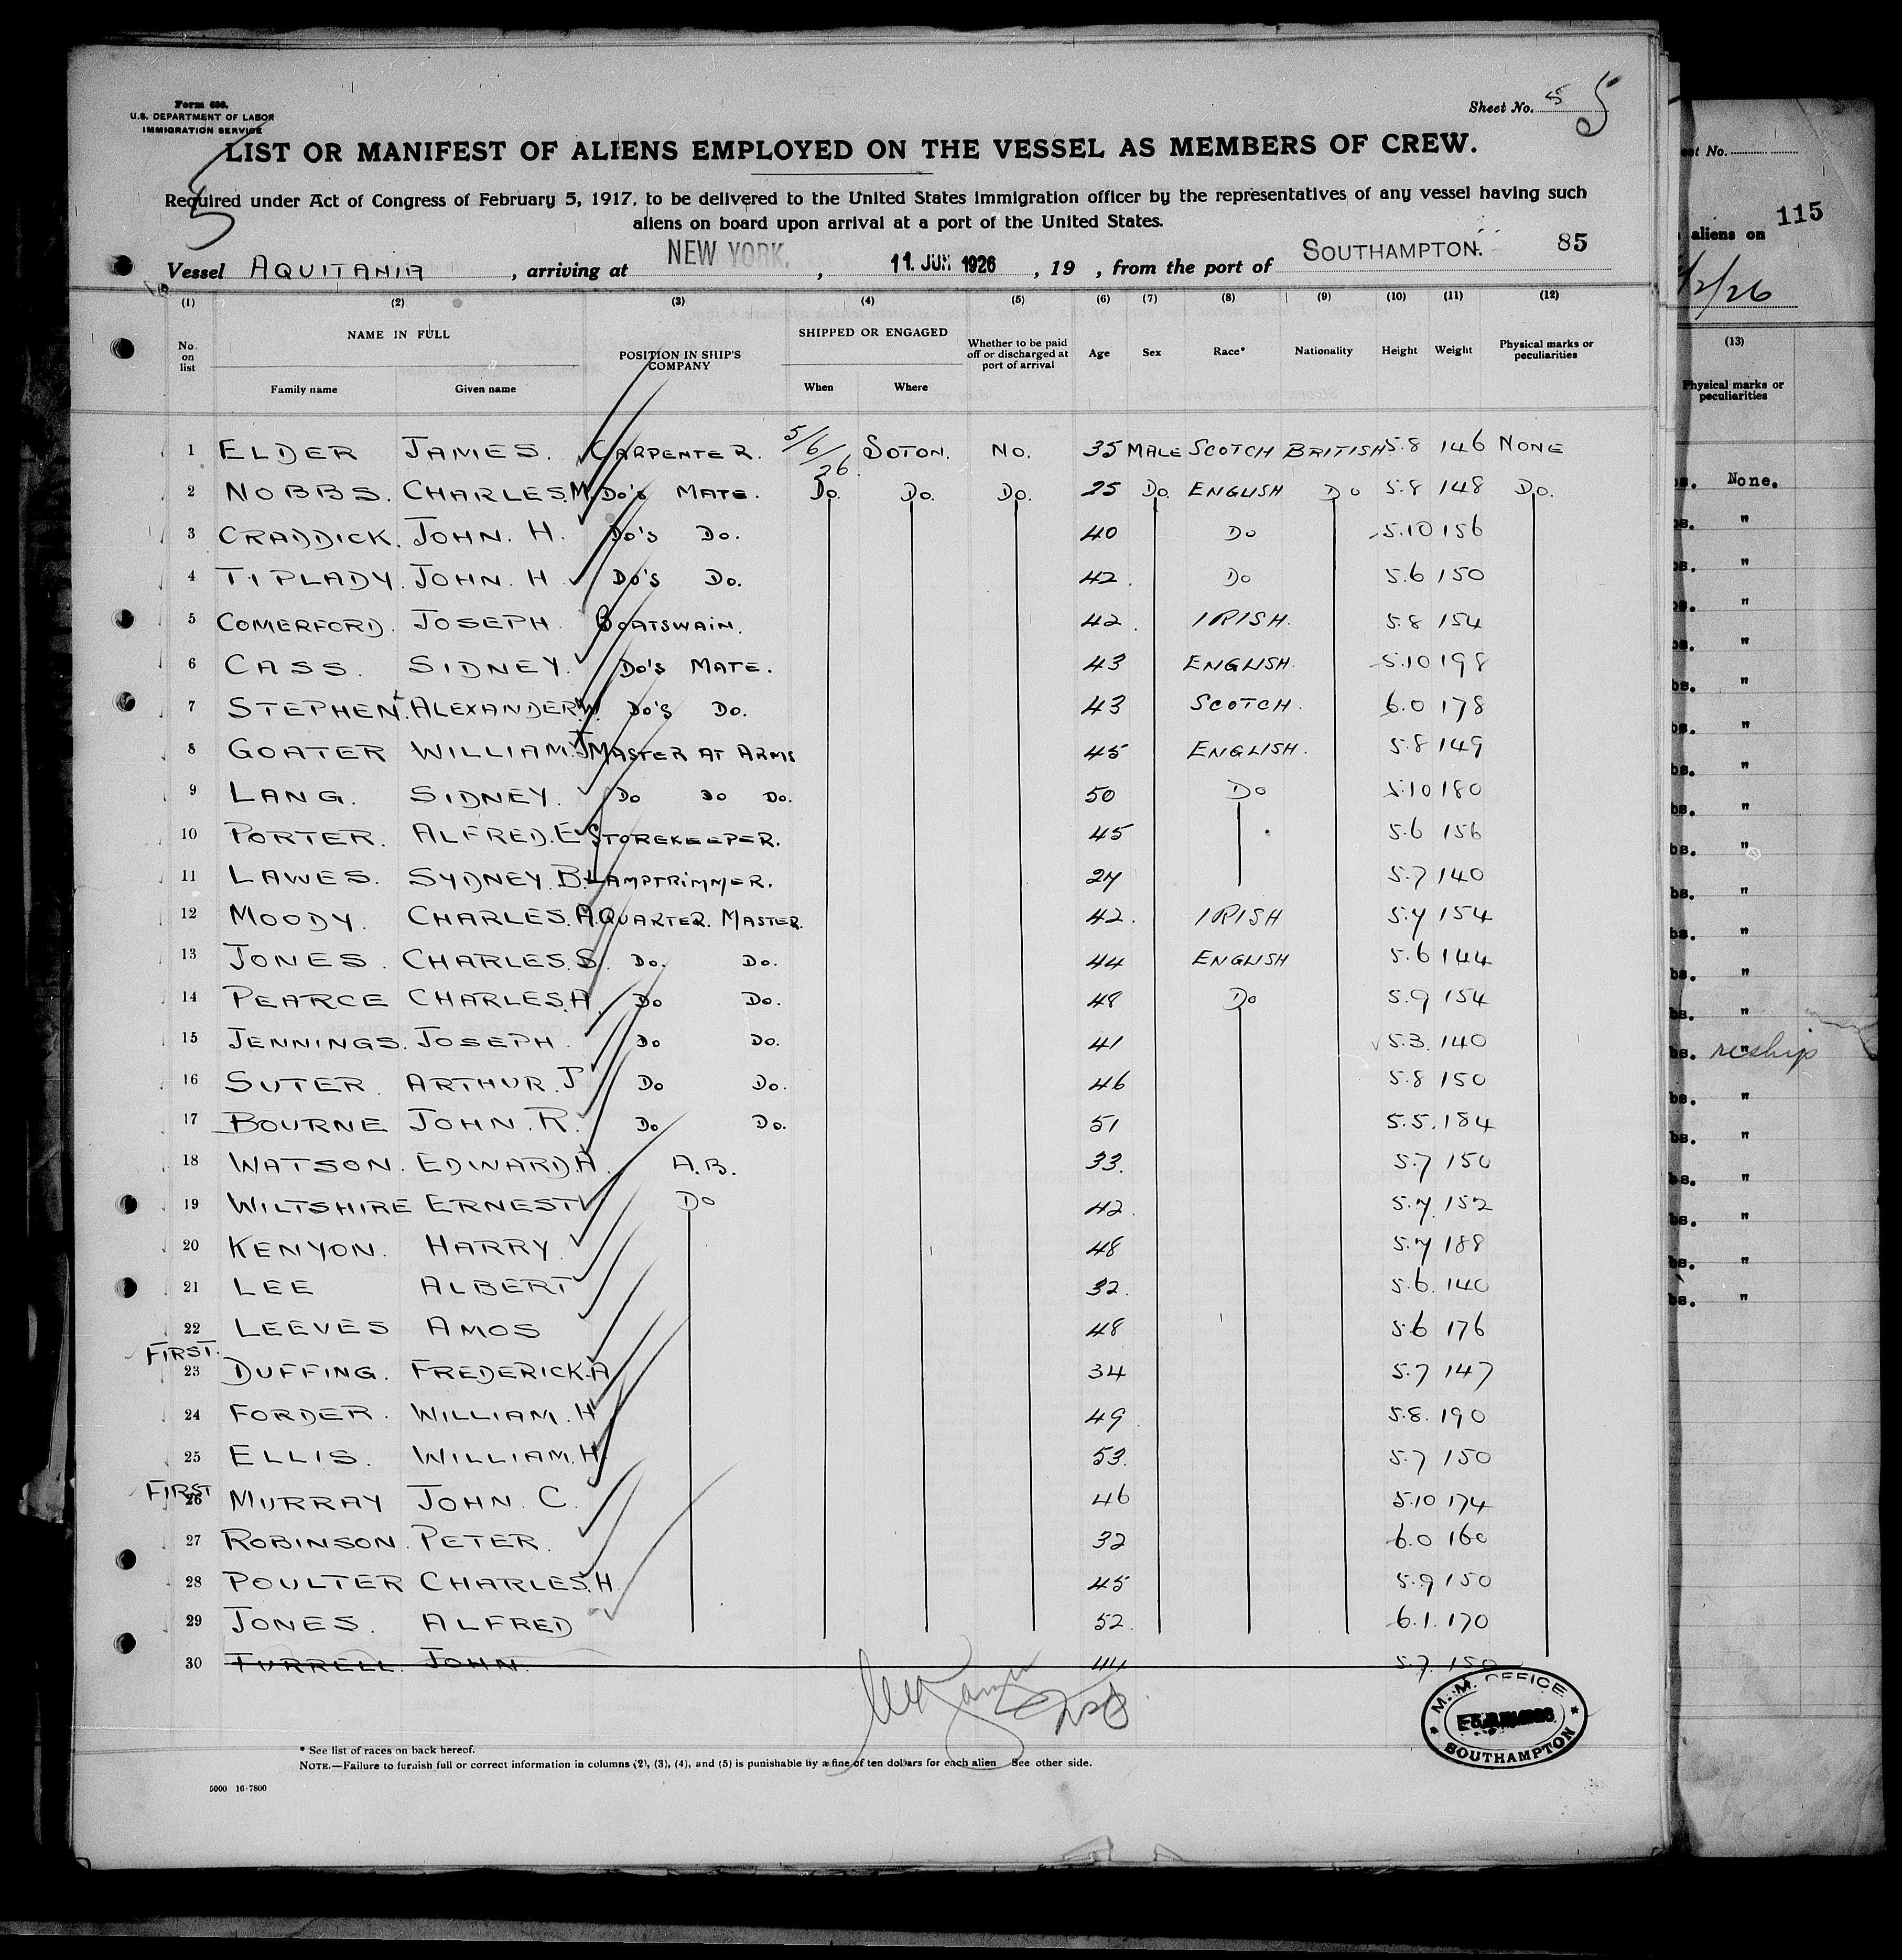 Form 686.
U.S. DEPARTMENT OF LABOR
IMMIGRATION SERVICE
Sheet No. 5 5
5
LIST OR MANIFEST OF ALIENS EMPLOYED ON THE VESSEL AS MEMBERS OF CREW.
Required under Act of Congress of February 5, 1917, to be delivered to the United States immigration officer by the representatives of any vessel having such
aliens on board upon arrival at a port of the United States.
Vessel AQUITANIA, arriving at NEW YORK., 11. JUN 1926, 19 , from the port of SOUTHAMPTON. 85
(1) (2) (3) (4) (5) (6) (7) (8) (9) (10) (11) (12)
No. on list NAME IN FULL Family name Given name POSITION IN SHIP'S COMPANY SHIPPED OR ENGAGED When Where Whether to be paid off or discharged at port of arrival Age Sex Race* Nationality Height Weight Physical marks or peculiarities
1 ELDER JAMES. CARPENTER. 5/6/26 SOTON. NO. 35 MALE SCOTCH BRITISH 5.8 146 NONE
2 NOBBS. CHARLES.M. DO'S MATE. DO. DO. DO. 25 DO. ENGLISH DO 5.8 148 DO.
3 CRADDICK. JOHN. H. DO'S DO. 40 DO 5.10 156
4 TIPLADY. JOHN. H DO'S DO. 42. DO 5.6 150
5 COMERFORD. JOSEPH BOATSWAIN. 42. IRISH. 5.8 154
6 CASS. SIDNEY. DO'S MATE. 43 ENGLISH. 5.10 198
7 STEPHEN. ALEXANDER.W. DO'S DO. 43 SCOTCH. 6.0 178
8 GOATER WILLIAM.J MASTER AT ARMS 45 ENGLISH. 5.8 149
9 LANG. SIDNEY. DO DO DO. 50 DO 5.10 180
10 PORTER. ALFRED.E STOREKEEPER. 45 5.6 156
11 LAWES. SYDNEY.B. LAMPTRIMMER. 24 5.7 140
12 MOODY. CHARLES.A. QUARTER. MASTER. 42. IRISH 5.7 154
13 JONES. CHARLES.S. DO. DO. 44 ENGLISH 5.6 144
14 PEARCE CHARLES.A. DO DO. 48 DO 5.9 154
15 JENNINGS. JOSEPH. DO DO. 41 5.3. 140
16 SUTER. ARTHUR.J DO DO. 46 5.8 150
17 BOURNE JOHN.R. DO DO. 51 5.5. 184
18 WATSON. EDWARD.A. A.B. 33. 5.7 150
19 WILTSHIRE ERNEST DO 42. 5.7. 152
20 KENYON. HARRY. 48 5.7 188
21 LEE ALBERT 32. 5.6. 140
22 LEEVES AMOS 48 5.6 176
FIRST.
23 DUFFING. FREDERICK.A 34 5.7 147
24 FORDER. WILLIAM.H 49 5.8. 190
25 ELLIS. WILLIAM.H. 53. 5.7 150
FIRST
26 MURRAY JOHN C. 46 5.10 174
27 ROBINSON. PETER. 32 6.0 160
28 POULTER CHARLES.H. 45 5.9 150
29 JONES. ALFRED 52. 6.1. 170
30 TURRELL. JOHN. 44 5.7. 150
M.M. OFFICE
SOUTHAMPTON
* See list of races on back hereof.
NOTE.—Failure to furnish full or correct information in columns (2), (3), (4), and (5) is punishable by a fine of ten dollars for each alien See other side.
5000 16-7800
eet No.
115
aliens on
/2/26
(13)
Physical marks or
peculiarities
bs. None.
bs. "
bs. reship